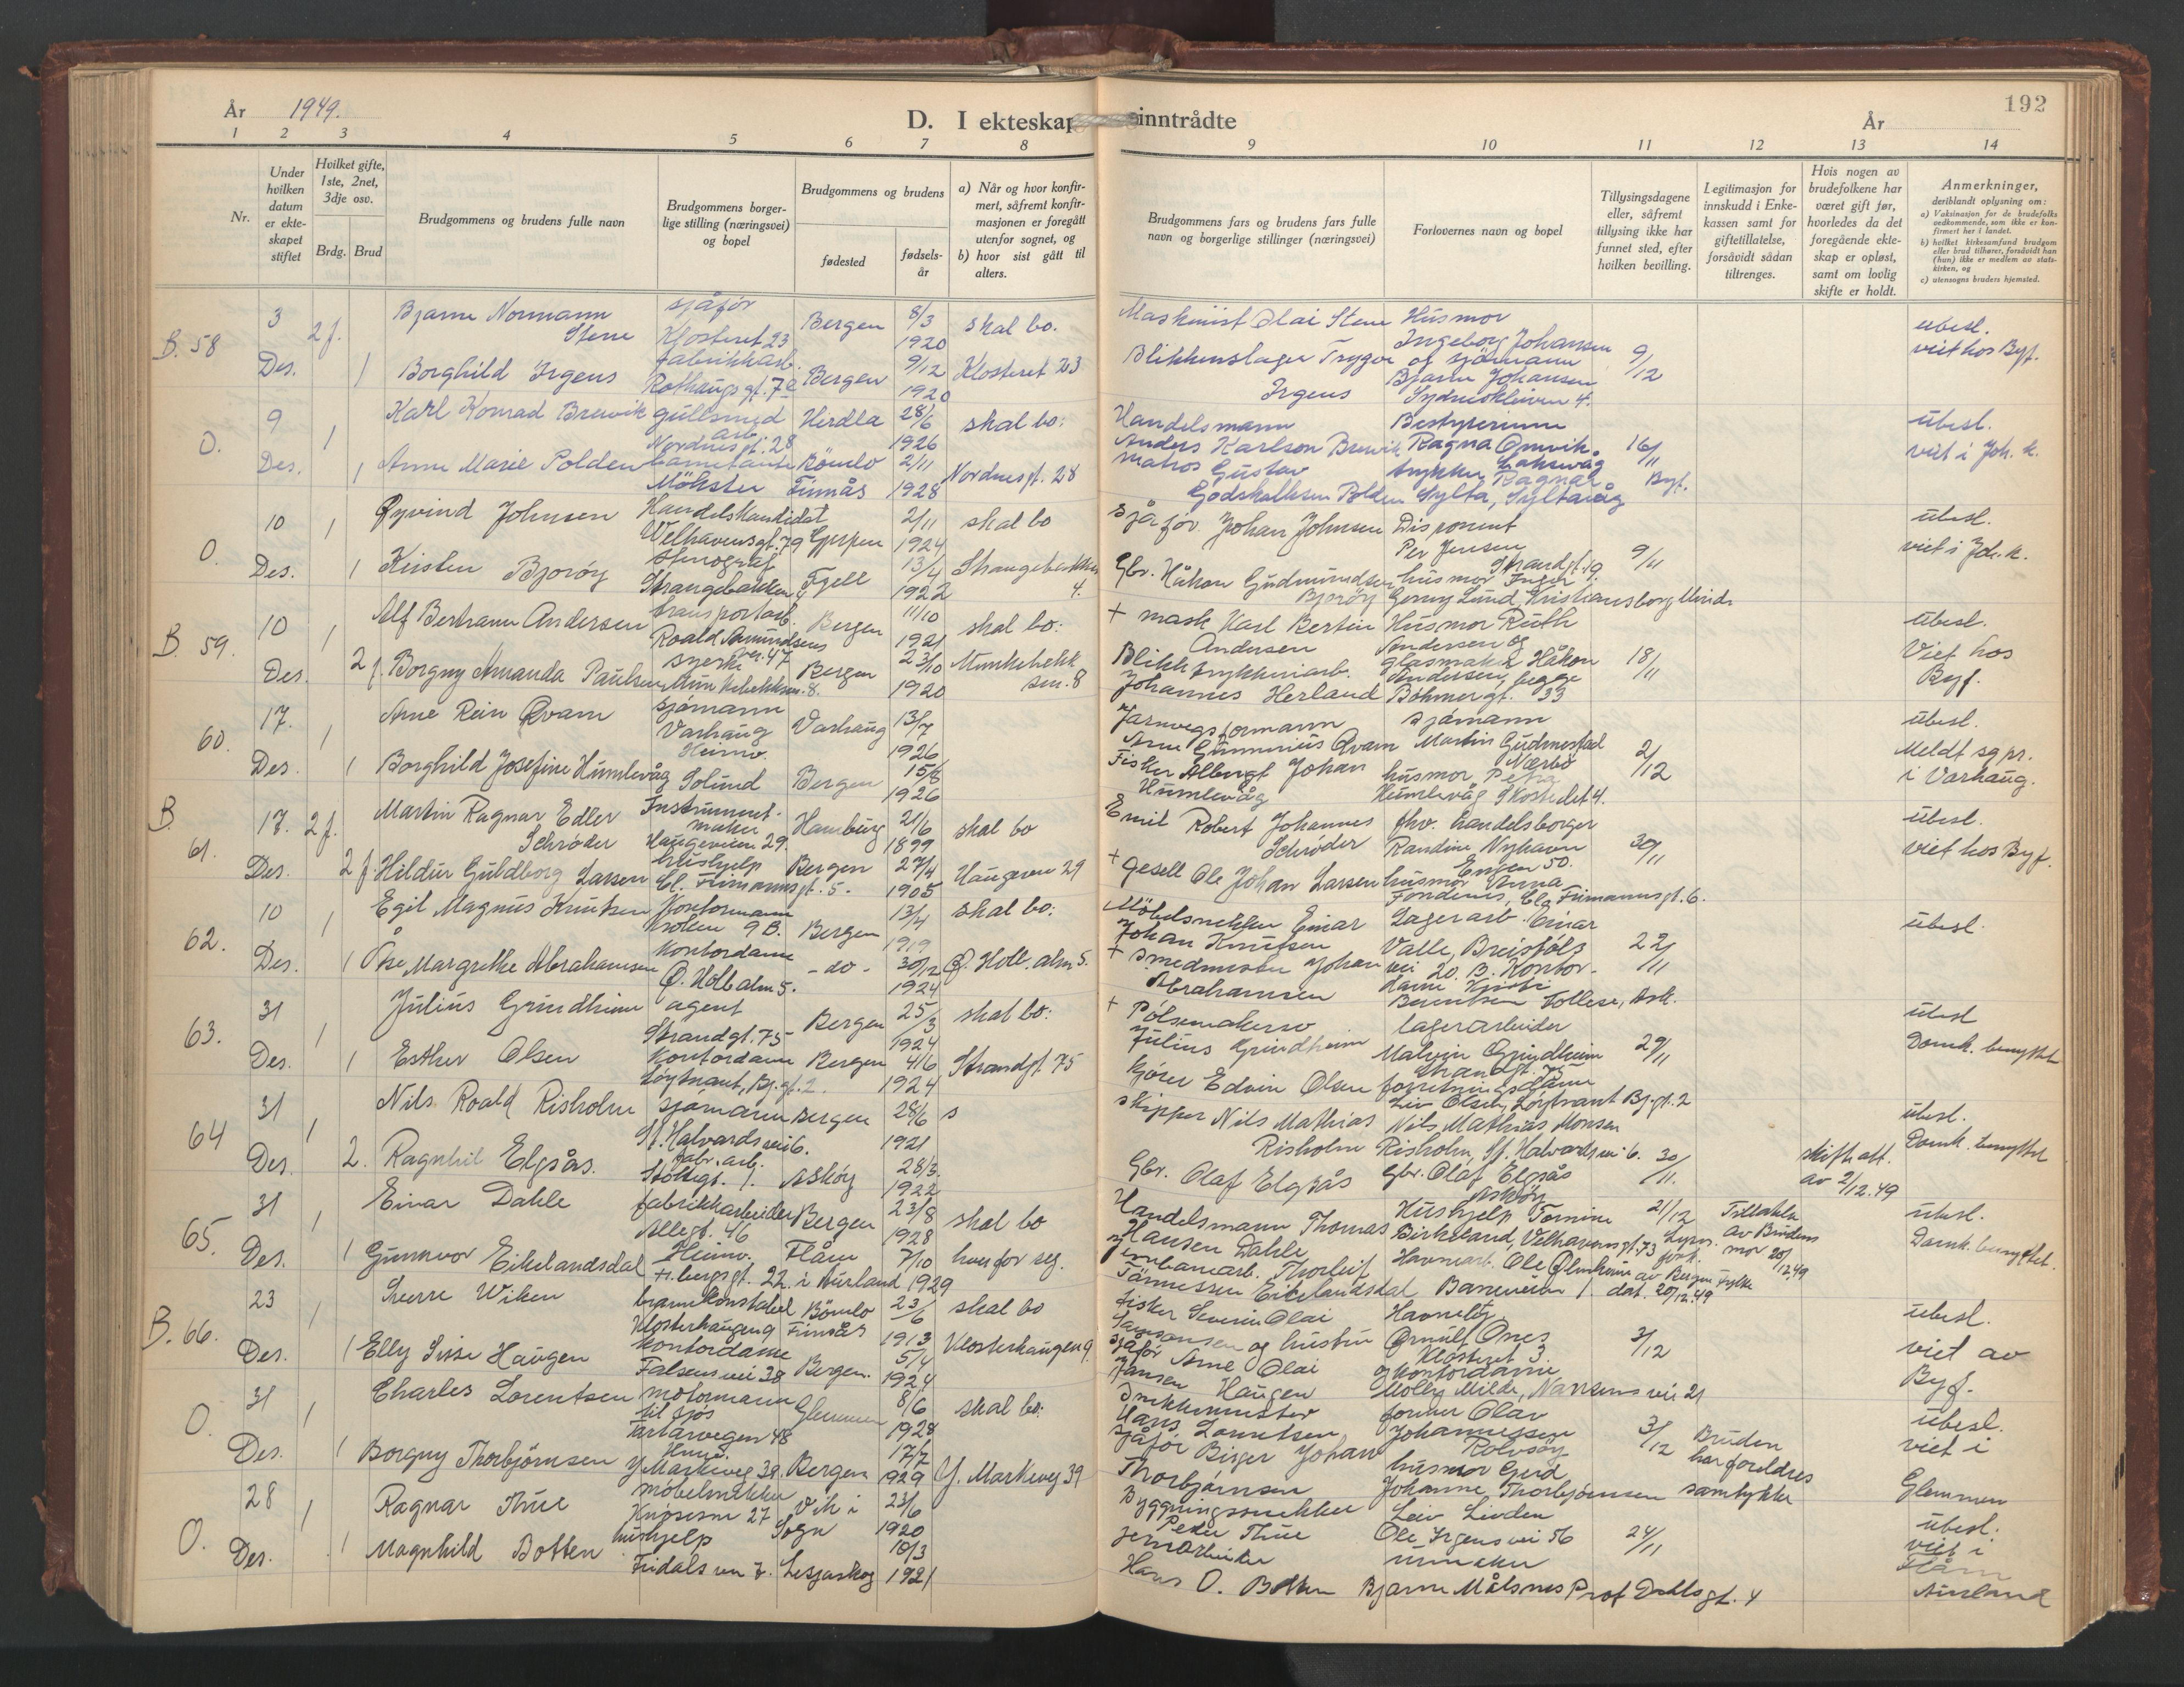 År 1949.
D. I ekteskap inntrådte
År
192
1 2 3 4 5 6 7 8 9 10 11 12 13 14
Nr.
Under hvilken datum er ekteskapet stiftet
Hvilket gifte, 1ste, 2net, 3dje osv.
Brdg. Brud
Brudgommens og brudens fulle navn
Brudgommens borgerlige stilling (næringsvei) og bopel
Brudgommens og brudens
fødested
fødselsår
a) Når og hvor konfirmert, såfremt konfirmasjonen er foregått utenfor sognet, og
b) hvor sist gått til alters.
Brudgommens fars og brudens fars fulle navn og borgerlige stillinger (næringsvei)
Forlovernes navn og bopel
Tillysingsdagene eller, såfremt tillysing ikke har funnet sted, efter hvilken bevilling.
Legitimasjon for innskudd i Enkekassen samt for giftetillatelse, forsåvidt sådan tiltrenges.
Hvis nogen av brudefolkene har været gift før, hvorledes da det foregående ekteskap er opløst, samt om lovlig skifte er holdt.
Anmerkninger, deriblandt oplysning om:
a) Vaksinasjon for de brudefolks vedkommende, som ikke er konfirmert her i landet.
b) hvilket kirkesamfund brudgom eller brud tilhører, forsåvidt han (hun) ikke er medlem av statskirken, og
c) utensogns bruders hjemsted.
B. 58 3 Des. 2f. Bjarne Normann Stene sjåfør Klosteret 23 Bergen 8/3 1920 skal bo. Maskinist Olai Stene Husmor Ingeborg Johansen ubesl.
1 Borghild Irgens fabrikkarb. Rothaugsgt. 7a Bergen 9/12 1920 Klosteret 23 Blikkenslager Trygve Irgens og sjømann Bjarne Johansen Sydneskleiven 4. 9/12 viet hos Byf.
O. 9 Des. 1 Karl Konrad Brewik gullsmed arb. Nordnesgt. 28 Herdla 28/6 1926 skal bo: Handelsmann Anders Karlson Brewik Bestyrerinne Ragna Onvik Laksevåg 16/11 ubesl.
1 Anne Marie Polden barnetante Møkster Bömlo Finnås 2/11 1928 Nordnesgt. 28 Matros Gustav Godskalksen Polden trykker Ragnar Sylta, Syltavåg Byf. viet i Joh. k.
O. 10 Des. 1 Øyvind Johnsen Handelskandidat Welhavensgt. 79 Gjerpen 2/11 1924 skal bo sjåfør Johan Johnsen Disponent Per Jensen Strandgt. 19. 9/11 ubesl.
1 Kirsten Bjorøy stenograf Strangebakken 4 Fjell 13/4 1922 Strangebakken 4. Gbr. Håkon Gudmundsen Bjorøy husmor Inger Gerny Lund, Kristiansborg, Minde viet i Joh. k.
B. 59. 10 Des. 1 Alf Bertram Andersen transportarb. Roald Amundsens vei 47 Bergen 11/10 1921 skal bo: + mask Karl Bertin Andersen Husmor Ruth Andersen og ubesl.
2 f. Borgny Amanda Paulsen syerske Munkebekksm. 8. Bergen 23/10 1920 Munkebekksm. 8 Blikktrykkeriarb. Johannes Herland glasmaker Håkon Andersen, begge Böhmergt. 33 18/11 Viet hos Byf.
60. 17. Des. 1 Arne Rein Qvam sjømann Varhaug Varhaug 13/7 1926 Jarnvegsformann Arne Gunnerius Qvam sjømann Martin Gudmestad Nærbø 2/12 ubesl.
1 Borghild Josefine Humlevåg Heimv. Solund Bergen 15/8 1926 Fisker Albregt Johan Humlevåg husmor Petra Humlevåg Skostredet 4. Meldt sg.pr. i Varhaug.
B 61. 17. Des. 2 f. Martin Ragnar Edler Schrøder Instrumentmaker Haugeveien 29. Hamburg 21/6 1899 skal bo Emil Robert Johannes Schrøder fhv. handelsborger Randine Nyhavn Engen 50. 30/11 ubesl.
2 f. Hildur Guldborg Larsen hushjelp Cl. Fimannsgt. 5. Bergen 27/4 1905 Haugeveien 29 + gesell Ole Johan Larsen husmor Anna Fondenes, Cla Fimannsgt. 6. viet hos Byf.
62. 10 Des. 1 Egil Magnus Knutsen Kontormann Hollen 9 B. Bergen 13/4 1919 skal bo: Möbelsnekker Einar Johan Knutsen Lagerarb. Einar Valle, Breistølsvei 20. B. 22/11 ubesl.
1 Åse Margrethe Abrahamsen Kontordame Ø. Holb.alm 5. - do - 30/12 1924 Ø. Holb. alm 5. + Smedmester Johan Abrahamsen Kontordame Berentsen Follese, Ask.
63. 31 Des. 1 Julius Grindheim agent Strandgt. 75 Bergen 25/3 1924 skal bo: + Pølsemakersv. Julius Grindheim lagerarbeider Malvin Grindheim Strandgt. 75 29/11 ubesl
1 Esther Olsen Kontordame Løytnant, Bj. gt. 2. Bergen 4/6 1924 Strandgt. 75 Kjører Edvin Olsen forretningsdame Liv Olsen, Løytnant Bj.gt. 2 Domk. benyttet
64 31 Des. 1 Nils Roald Risholm sjømann St. Halvards vei 6. Bergen 28/6 1921 s skipper Nils Mathias Risholm Nils Mathias Monsen Risholm, St. Halvards vei 6. 30/11. ubesl.
2. Ragnhil Elgsås. fabr. arb. Støltegt. 1. Askøy 28/3. 1922 Gbr. Olaf Elgsås Gbr. Olaf Elgsås Askøy skifteatt. av 2/12.49 Domk. benyttet
65. 31 Des. 1 Einar Dahle fabrikkarbeider Allegt. 46 Bergen 23/8 1928 skal bo Handelsmann Thomas Hansen Dahle Hushjelp Tomine Birkeland, Velhavensgt. 73 21/12 Tillatelse av Brudens mor 20/12.49 ubesl.
1 Gunnvor Eikelandsdal Heimv. Flåm i Aurland 7/10 1929 hver for seg. Jernbanearb. Thorleif Tönnessen Eikelandsdal Havnearb. Ole Baneveien 1. av Bergen Fylke dat. 20/12.49 Domk. benyttet.
B. 66. 23 Des. 1 Sverre Wiken brannkonstabel Klosterhaugen 9 Bömlo Finnås 23/6 1913 skal bo fisker Severin Olai og hustru Havneltg Ørnulf Ones Klosteret 3. 3/12 ubesl.
1 Elly Sissi Haugen Kontordame Falsensvei 38 Bergen. 5/4 1924 Klosterhaugen 9. sjåfør Arne Olai Jansen Haugen og Kontordame Molly Milde, Nansens vei 21 viet av Byf.
O. 31 Des. 1 Charles Lorentsen motormann til sjøs Tartarvegen 48 Glemmen 8/6 1928 skal bo: Snekkermester Hans Lorentsen former Olav Johannessen Rolvsøy 3/12 Bruden har foreldres samtykke ubesl.
1 Borgny Thorbjørnsen Y. Markevei 39 Bergen 17/7 1929 Y. Markevei 39 sjåfør Birger Johan Thorbjørnsen husmor Gerd Johanne Thorbjørnsen viet i Glemmen
O. 28 Des. 1 Ragnar Thue møbelsnekker Knøsesm 27 Vik i Sogn 23/6 1920 Byggningssnekker Peder Thue Leiv Livden Ole Irgens vei 56 24/11 ubesl.
1 Magnhild Botten hushjelp Fridalsvn 7. Lesjaskog 10/3 1921 jernarbeider Hans O. Botten Bjarne Målsnes Prof Dahlsgt. 4 viet i Flåm Aurland